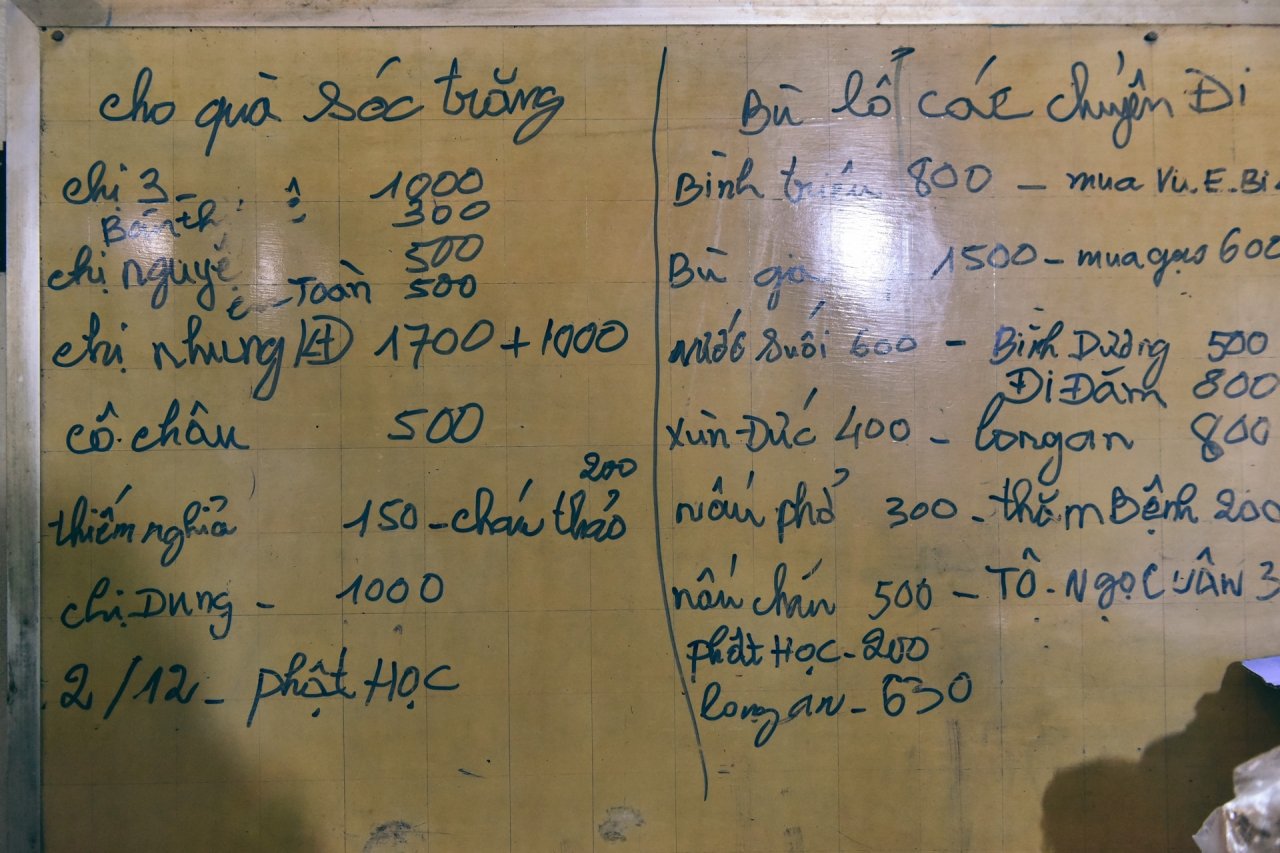 cho quà sóc trăng
chị 3 - 1000
300
chị 500
Toàn 500
chị nhung KĐ 1700 + 1000
cô châu 500
200
thiếm nghỉa 150 - cháu thảo
chị Dung - 1000
2/12 - phật Học
Bù lổ các chuyến Đi
Bình triệu 800 - mua Vu.E.
Bù 1500 - mua gạo 600
nước suối 600 - Bình Dương 500
Đi Đám 800
xùn-Đức 400 - longan 800
nấu phở 300 - thăm Bệnh 200
nấu cháu 500 - TÔ. NGỌC VÂN 3
phật Học - 200
long an - 630